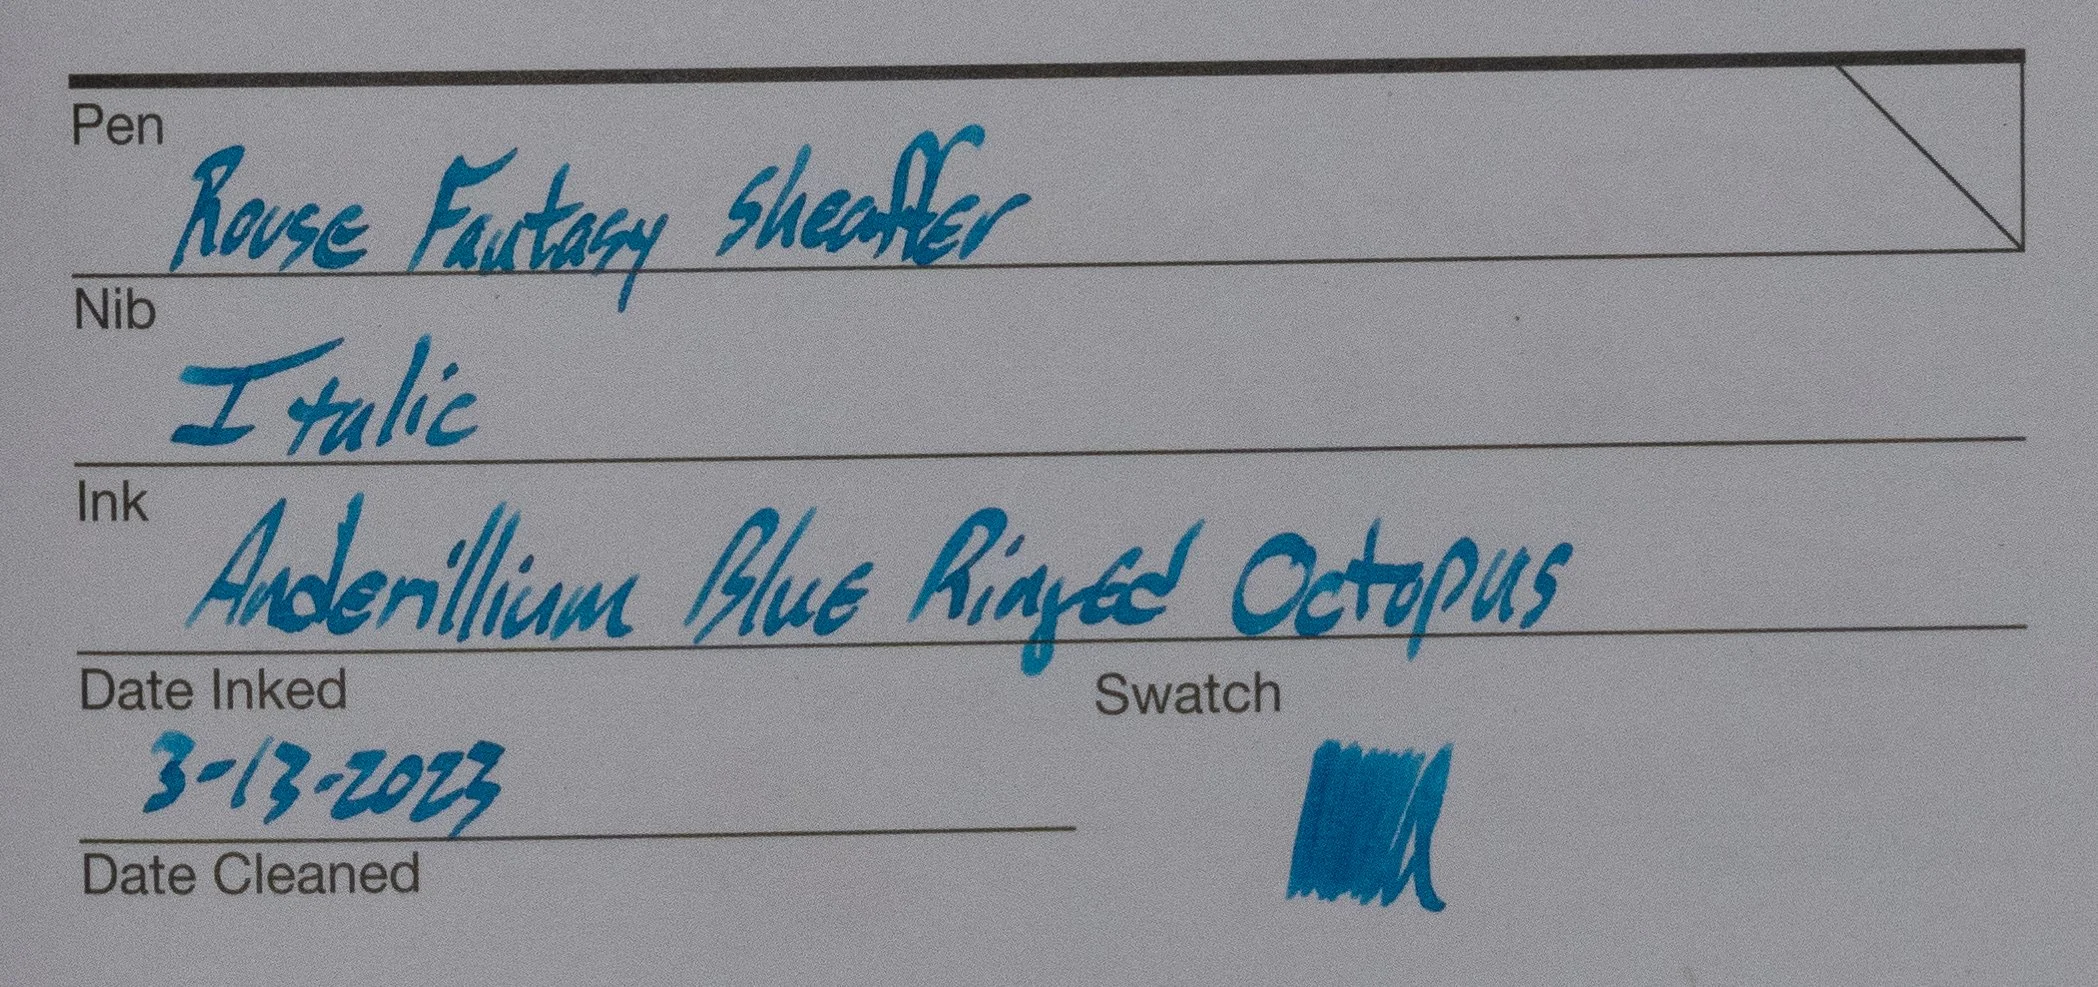 Pen
Rouse Fantasy Sheaffer
Nib
Italic
Ink
Anderillium Blue Ringed Octopus
Date Inked
Swatch
3-13-2023
Date Cleaned